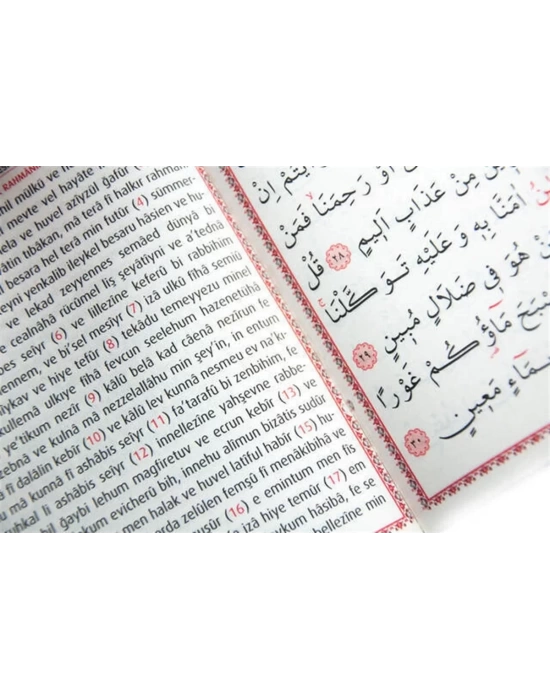 RAHMAN
mülkü ve
mevte vel hayâte
ve huvel azîyzül gafûr
tıbâkan, mâ terâ fî halkır rahmani
besara hel terâ min futûr (4) sümmer-
yenkalib ileykel besaru hâsien ve hu-
ve lekad zeyyennes semâed dünyâ bi
ve cealnâhâ rücûmel liş şeyâtıyni ve a'tednâ
bes seıyr (6) ve lillezîne keferû bi rabbihim
ennem, ve bi'sel mesîyr (7) izâ ulkû fîhâ semiû
ıykav ve hiye tefûr (8) tekâdu temeyyezu minel
küllemâ ulkıye fîhâ fevcun seelehum hazenetühâ
e'tikum nezîr (9) kâlû belâ kad câenâ nezîrun fe
zebnâ ve kulnâ mâ nezzelallâhu min şey'in, in entum
â fî dalâlin kebîr (10) ve kâlû lev kunnâ nesmeu ev na'k-
u mâ kunnâ fî ashâbis seıyr (11) fa'tarafû bi zenbihim, fe
uhkal li ashâbis seıyr (12) innellezîne yahşevne rabbe-
bil ğaybi lehum magfiretuv ve ecrun kebîr (13) ve
kum evicherû bih, innehu alîmun bizâtis sudûr
men halak ve huvel latîful habîr (15) hu-
arda zelûlen femşû fî menâkibihâ ve
nuşûr (16) e emintum men fis
e izâ hiye temûr (17) em
aykum hâsibâ, fe se
bellezîne min
اِنْ
اَوْ رَحِمَنَا فَمَنْ
مِنْ عَذَابٍ اَلِيمٍ ﴿٢٨﴾ قُلْ
اٰمَنَّا بِهٖ وَعَلَيْهِ تَوَكَّلْنَا
هُوَ فِي ضَلَالٍ مُبِينٍ ﴿٢٩﴾
صْبَحَ مَاؤُكُمْ غَوْرًا
مَاءٍ مَعِينٍ ﴿٣٠﴾